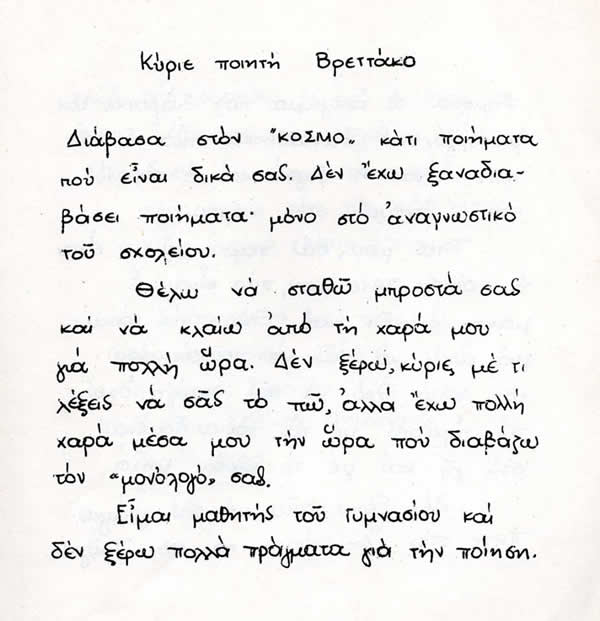 Κύριε ποιητή Βρεττάκο
Διάβασα στὸν "ΚΟΣΜΟ„ κάτι ποιήματα
ποὺ εἶναι δικά σας. Δὲν ἔχω ξαναδια-
βάσει ποιήματα· μόνο στὸ ἀναγνωστικὸ
τοῦ σχολείου.
Θέλω νὰ σταθῶ μπροστά σας
καὶ νὰ κλαίω ἀπὸ τὴ χαρά μου
γιὰ πολλὴ ὥρα. Δὲν ξέρω, κύριε, μὲ τι
λέξεις νὰ σᾶς τὸ πῶ, ἀλλὰ ἔχω πολλὴ
χαρὰ μέσα μου τὴν ὥρα ποὺ διαβάζω
τὸν «μονόλογό» σας.
Εἶμαι μαθητὴς τοῦ Γυμνασίου καὶ
δὲν ξέρω πολλὰ πράγματα γιὰ τὴν ποίηση.